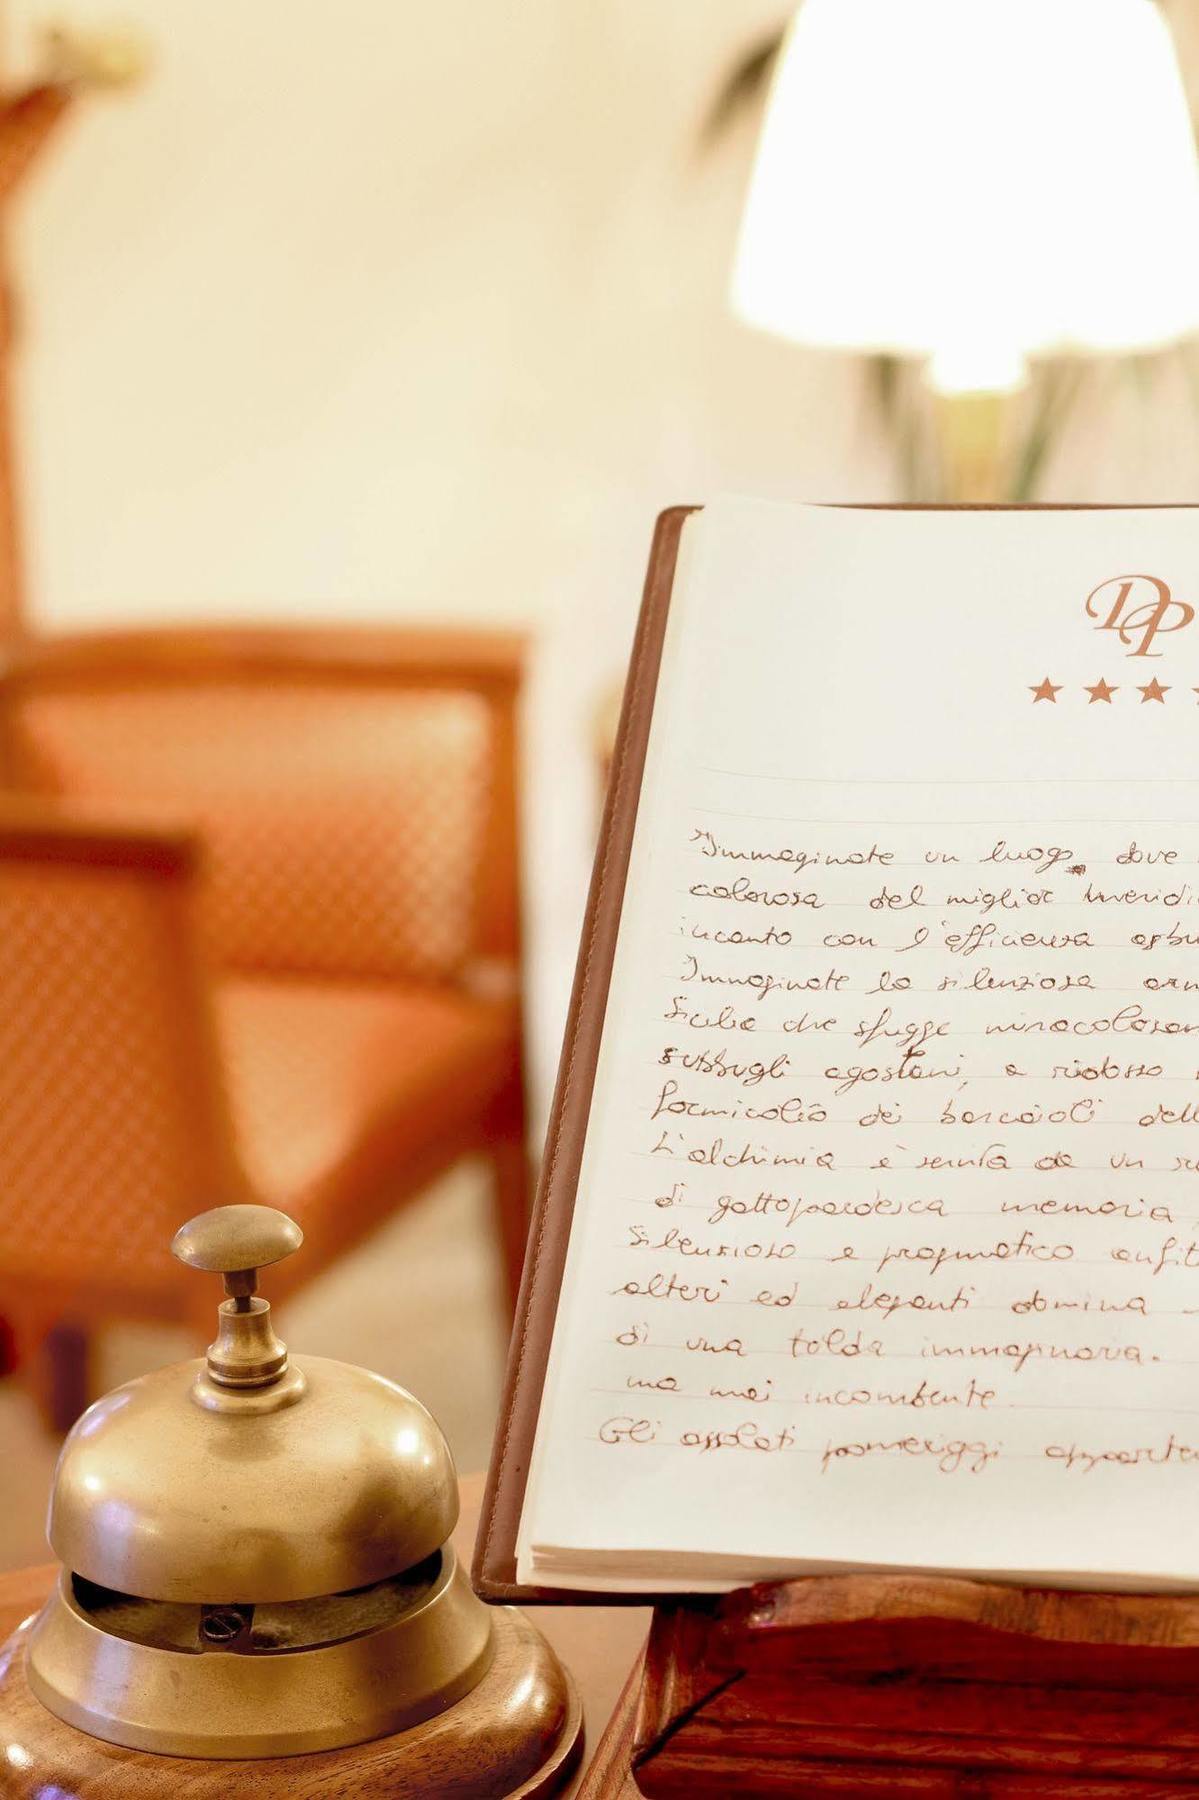 DP
"Immaginate un luogo dove
calorosa del miglior meridi
incanto con l'efficienza asbu
Immaginate la silenziosa arm
Sicilia che sfugge miracolosam
subbugli agostani, a ridosso
formicolio dei barcaioli dell
L'alchimia è servita da un
di gattopardesca memoria
Silenzioso e pragmatico anfit
alteri ed eleganti domina
di una tolda immaginaria.
ma mai incombente.
Gli assolati pomeriggi apparte